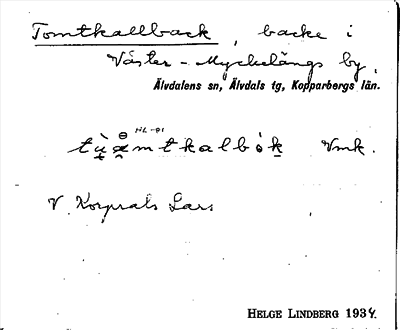 Tomtkallback, backe i
Väster-Myckelängs by,
Älvdalens sn, Älvdals tg, Kopparbergs län.
Vmk.
V. Korprals Lars
HELGE LINDBERG 1934.